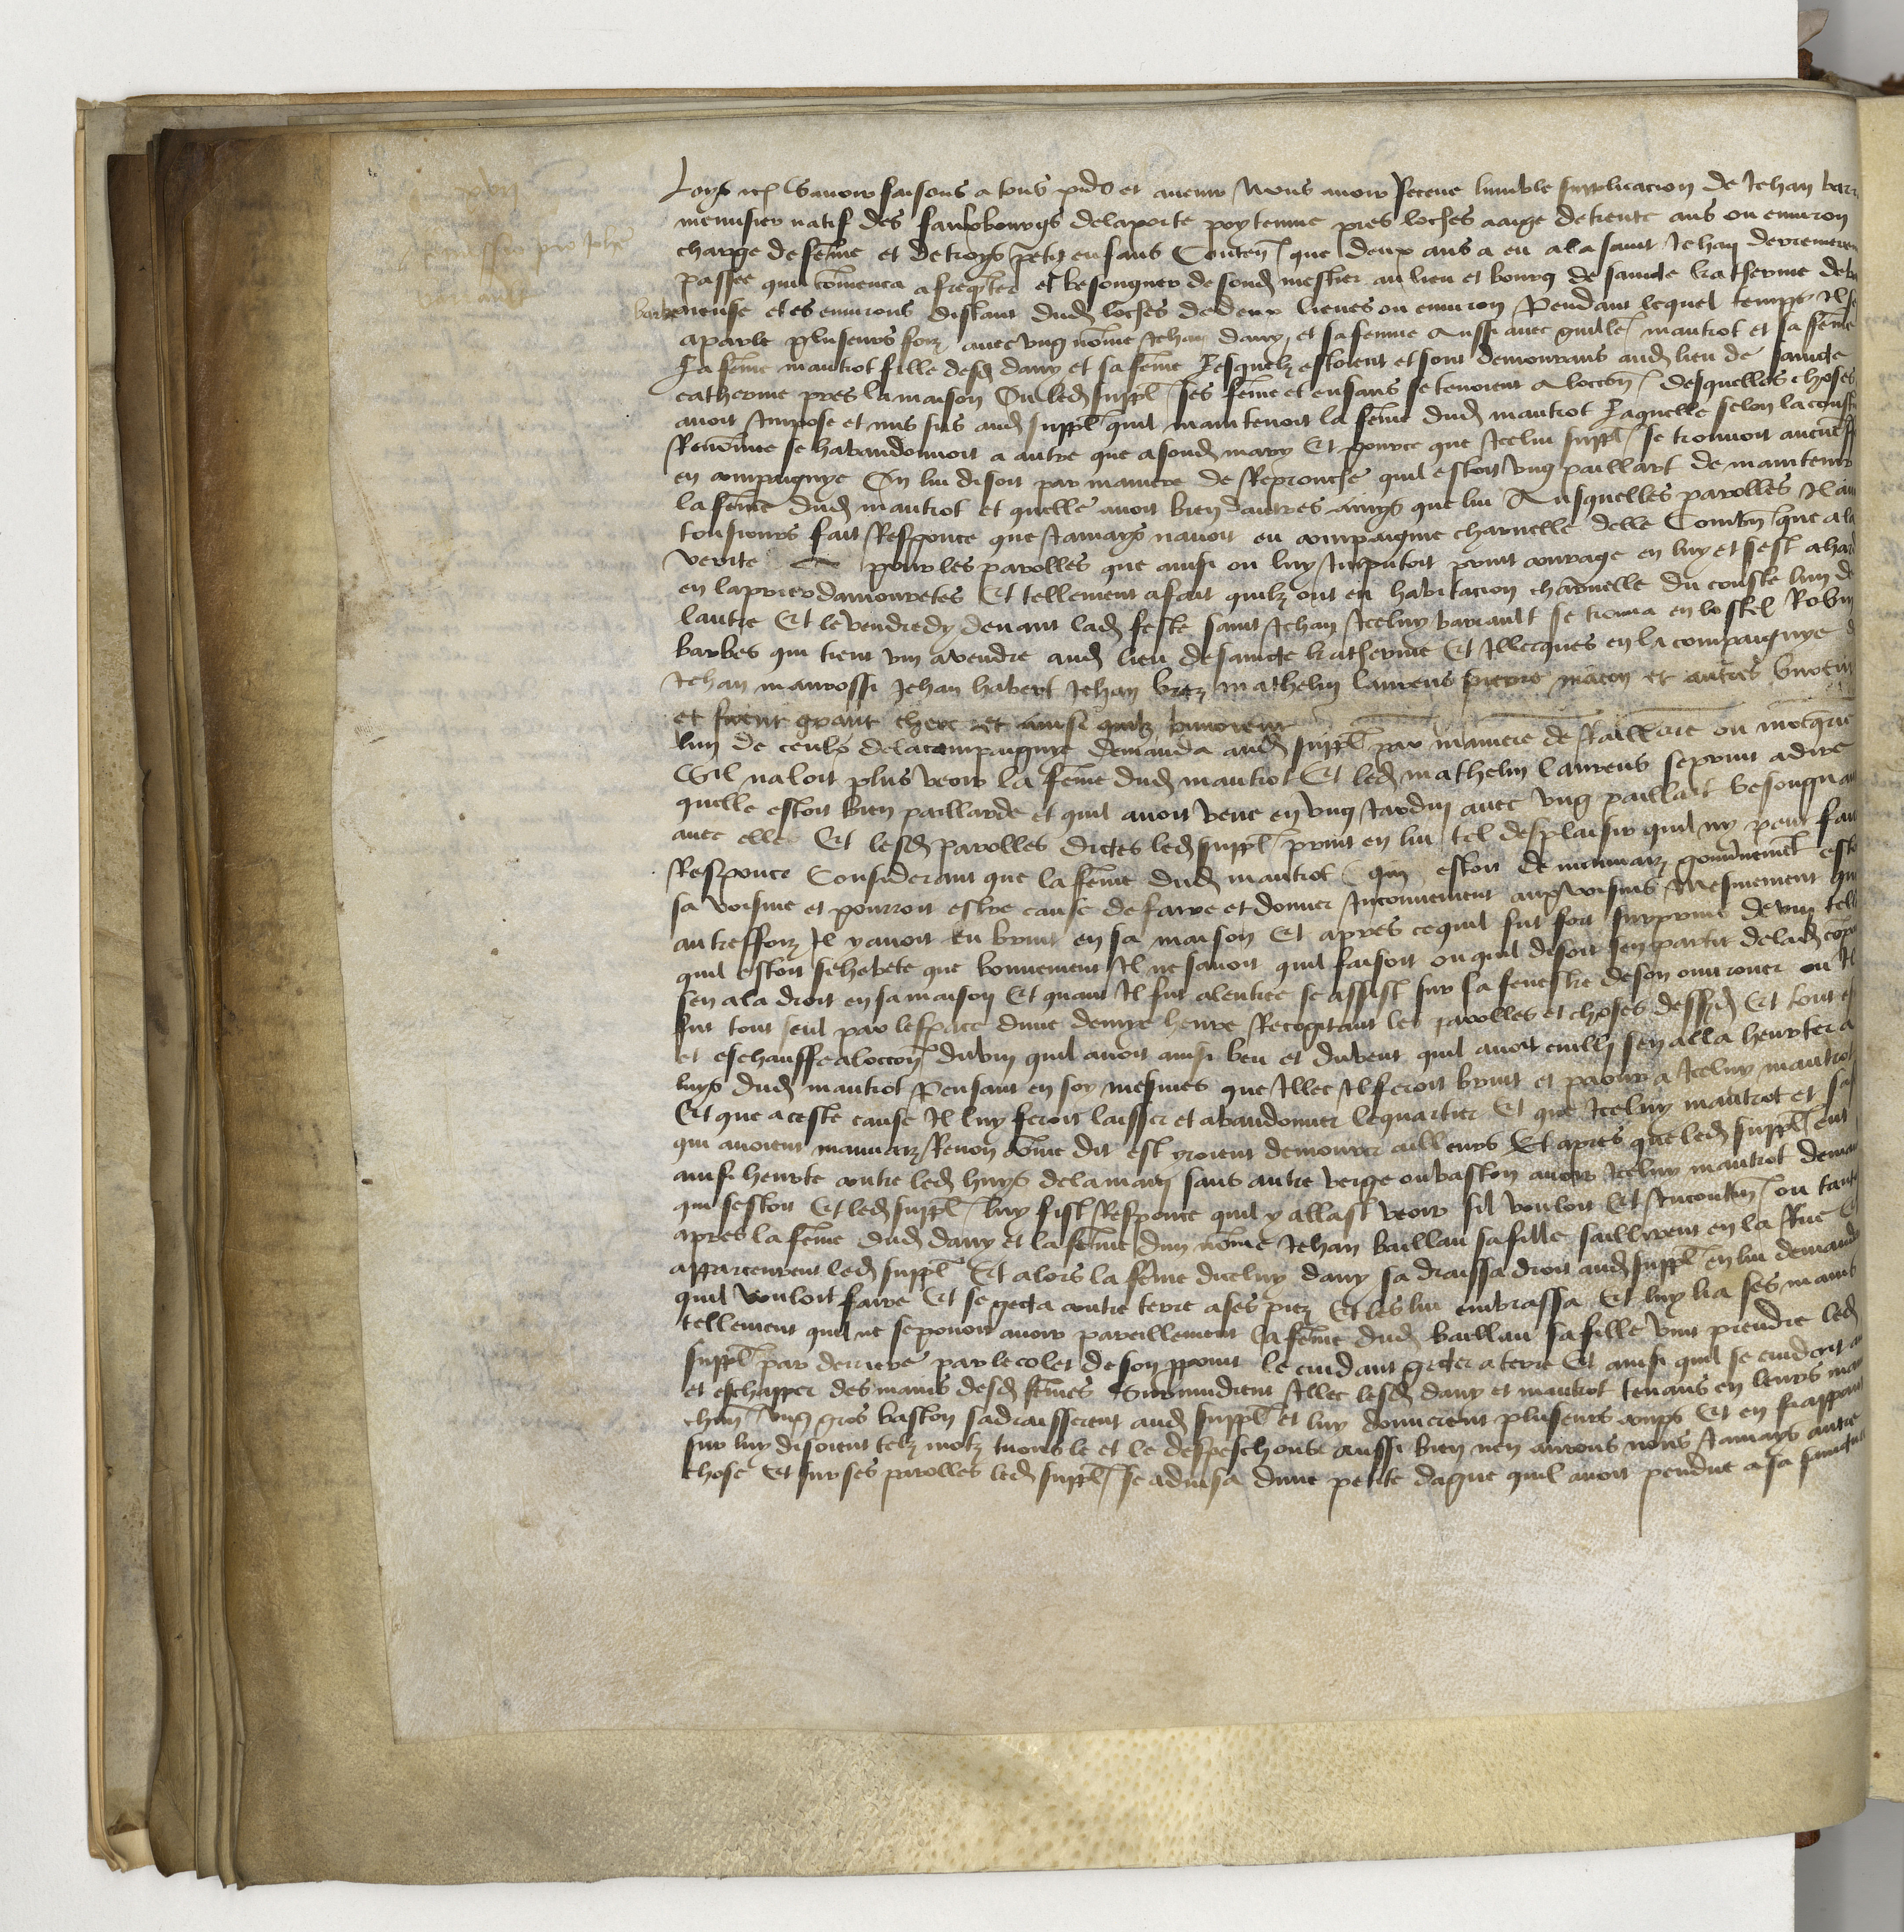 Remissio pro Johanne
barrault
Loys etc Savoir faisons a tous pns et avenir Nous avoir Receue lumble supplicacion de Jehan barr
menusier natif des faulxbourgs de la porte poytenine pres loches aaige de trente ans ou environ
charge de feme et de troys petiz enfans Conten que deux ans a eu a la saint Jehan derreniere
passee quil comenca a freqnter et besongner de sond mestier au lieu et bourg de saincte katherine de
bonneuse et es environs distant dud loches de deux lieues ou environ Pendant lequel temps Il
a parle pluseurs foiz avec ung nome Jehan davy et sa femme Aussi avec guille mautrot et sa feme
La feme mautrot fille desd davy et sa feme Lesquelz estoient et sont demourans aud lieu de saincte
catherine pres la maison Ou led suppl ses feme et enfans se tenoient A loccon desquelles choses
avoit Impose et mis sus aud suppl quil maintenoit la feme dud mautrot Laquelle selon la
Renomee se habandonnoit a autre que a sond mary Et pource que Icelui suppl se trouvoit
en compaignye On lui disoit par maniere de Reprouche quil estoit ung paillart de maintenir
la feme dud mautrot et quelle avoit bien dautres amys que lui Ausquelles parolles Il
tousjours fait Responce que Jamays navoit eu compaignie charnelle delle Combn que a la
verite pour les parolles que ainsi on luy Imputoit print courage en luy et sest
en la prier damouretes Et tellement a fait quilz ont eu habitacion charnelle du couste lun de
lautre Et le vendredy devant lad feste saint Jehan Iceluy barrault se trouva en lostel Robin
barbes qui tient vin a vendre aud lieu de saincte katherine Et Illecques en la compaignye
Jehan maurossi Jehan habert Jehan brez mathelin laurens pierre macon et autres
et firent grant chere et ainsi quilz buvoient
lun de ceulx de la compaignye demanda aud suppl par maniere de Raillerie ou
Sil naloit plus veoir la feme dud mautrot Et led mathelin laurens se print a dire
quelle estoit bien paillarde et quil avoit veue en ung Jardin avec ung paillart
avec elle Et lesd parolles dictes led suppl print en lui tel desplaisir quil ny peut
Responce Considerant que la feme dud mautrot qui estoit de mauvaiz gouvnement
sa voisine et pourroit estre cause de faire et donner Inconvenient aux voisins Mesmement
autresfoiz Il y avoit eu bruit en sa maison Et apres ce quil fut fort surprins de vin
quil estoit si hebete que bonnement Il ne savoit quil faisoit ou quil disoit sen partit de lad
sen ala droit en sa maison Et quant Il fut a lentree se assist sur la fenestre de son ouvrouer ou Il
fut tout seul par lespace dune demye heure Recogitant les parolles et choses dessusd Et
et eschauffe a loccon du vin quil avoit ainsi beu et du vent quil avoit sen alla heurter a
luys dud mautrot Pensant en soy mesmes que Illec Il feroit bruit et paour a Iceluy mautrot
Et que a ceste cause Il luy feroit laisser et abandonner le quartier Et que Iceluy mautrot et sa
qui avoient mauvaiz Renon come dit est yroient demourer ailleurs Et apres que led suppl eut
ainsi heurte contre led huys de la main sans autre verge ou baston avoir Iceluy mautrot
qui sestoit Et led suppl luy fist Responce quil y allast veoir sil vouloit Et Incontinn ou
apres la feme dud davy et la feme dun nome Jehan baillau sa fille saillirent en la Rue
apparceurent led suppl Et alors la feme dicelny davy sadraissa droit aud suppl en lui
quil vouloit faire Et se gecta contre terre a ses piez Et les lui embrassa Et luy lia ses mains
tellement quil ne se povoit avoir pareillement la feme dud baillau sa fille vint prendre led
suppl par derriere par le colet de son ppoint le cuidant gecter a terre Et ainsi quil se cuidoit
et eschapper des mains desd femes Survindrent Illec lesd davy et mautrot tenans en leurs
chun ung gros baston sadraisserent aud suppl et luy donnerent pluseurs coups Et en frappant
sur luy disoient telz motz tuons le et le despeschons aussi bien nen aurons nous Jamays autre
chose Et sur ses parolles led suppl se advisa dune petite dague quil avoit pendue a sa